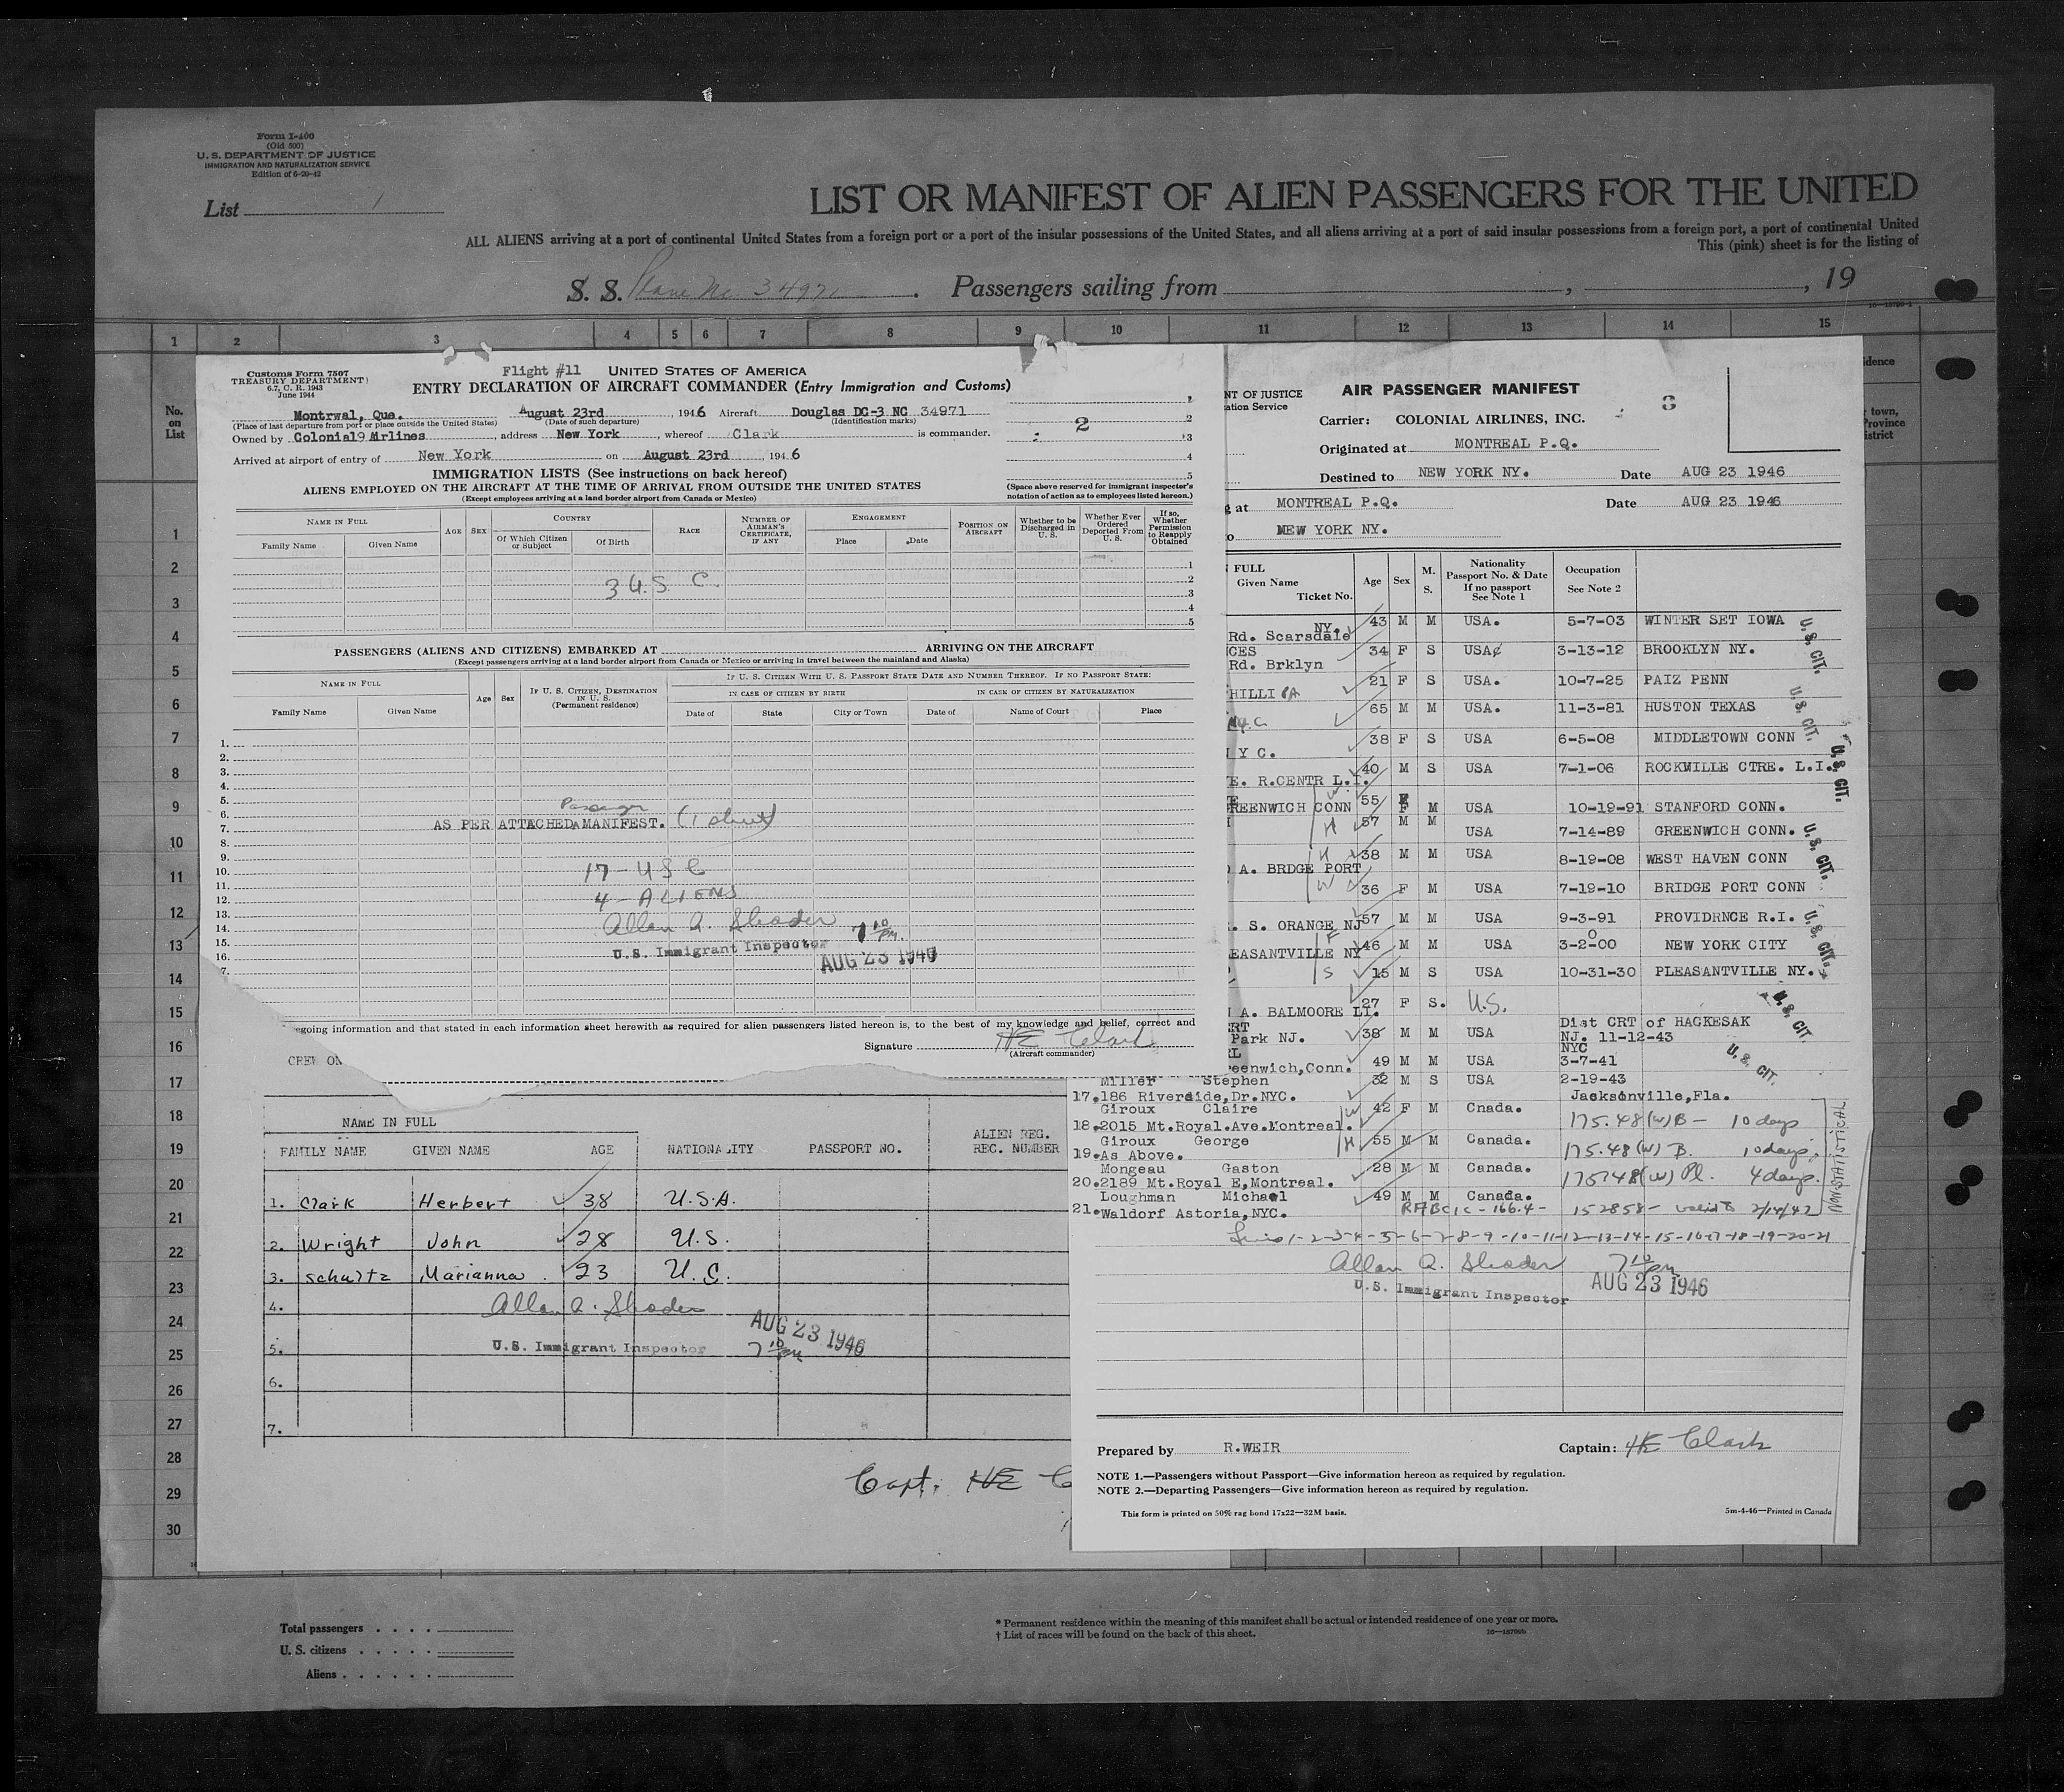 Form I-400
(Old 500)
U. S. DEPARTMENT OF JUSTICE
IMMIGRATION AND NATURALIZATION SERVICE
Edition of 6-20-42
List 1
LIST OR MANIFEST OF ALIEN PASSENGERS FOR THE UNITED
ALL ALIENS arriving at a port of continental United States from a foreign port or a port of the insular possessions of the United States, and all aliens arriving at a port of said insular possessions from a foreign port, a port of continental United
This (pink) sheet is for the listing of
S. S. Plane No 34971. Passengers sailing from , , 19
1 2 3 4 5 6 7 8 9 10 11 12 13 14 15
No.
on
List
1
2
3
4
5
6
7
8
9
10
11
12
13
14
15
16
17
18
19
20
21
22
23
24
25
26
27
28
29
30
Customs Form 7507
TREASURY DEPARTMENT
6.7, C. R. 1943
June 1944
Flight #11 UNITED STATES OF AMERICA
ENTRY DECLARATION OF AIRCRAFT COMMANDER (Entry Immigration and Customs)
Montrwal, Que. August 23rd, 1946 Aircraft Douglas DC-3 NC 34971
(Place of last departure from port or place outside the United States) (Date of such departure) (Identification marks)
Owned by Colonial9 Airlines, address New York, whereof Clark is commander.
Arrived at airport of entry of New York on August 23rd, 1946
2
IMMIGRATION LISTS (See instructions on back hereof)
ALIENS EMPLOYED ON THE AIRCRAFT AT THE TIME OF ARRIVAL FROM OUTSIDE THE UNITED STATES
(Except employees arriving at a land border airport from Canada or Mexico)
(Space above reserved for immigrant inspector's
notation of action as to employees listed hereon.)
NAME IN FULL AGE SEX COUNTRY RACE NUMBER OF AIRMAN'S CERTIFICATE, IF ANY ENGAGEMENT POSITION ON AIRCRAFT Whether to be Discharged in U. S. Whether Ever Ordered Deported From U. S. If so, Whether Permission to Reapply Obtained
Family Name Given Name Of Which Citizen or Subject Of Birth Place Date
3 U.S. C.
1
2
3
4
5
PASSENGERS (ALIENS AND CITIZENS) EMBARKED AT ARRIVING ON THE AIRCRAFT
(Except passengers arriving at a land border airport from Canada or Mexico or arriving in travel between the mainland and Alaska)
NAME IN FULL Age Sex IF U. S. CITIZEN, DESTINATION IN U. S. (Permanent residence) IF U. S. CITIZEN WITH U. S. PASSPORT STATE DATE AND NUMBER THEREOF. IF NO PASSPORT STATE:
IN CASE OF CITIZEN BY BIRTH IN CASE OF CITIZEN BY NATURALIZATION
Family Name Given Name Date of State City or Town Date of Name of Court Place
1.
2.
3.
4.
5.
6. Passenger
7. AS PER ATTACHED MANIFEST. (1 sheet)
8.
9.
10. 17 - U S C
11.
12. 4 - ALIENS
13.
14. Allan A. Shader 7 10 PM.
15. U.S. Immigrant Inspector
16. AUG 23 1946
7.
going information and that stated in each information sheet herewith as required for alien passengers listed hereon is, to the best of my knowledge and belief, correct and
Signature HE Clark
(Aircraft commander)
CREW ON
NAME IN FULL
FAMILY NAME GIVEN NAME AGE NATIONALITY PASSPORT NO. ALIEN REG. REC. NUMBER
1. Clark Herbert 38 U.S.A.
2. Wright John 28 U.S.
3. Schultz Marianna 23 U.S.
4. Allan A. Shader
AUG 23 1946
5. U.S. Immigrant Inspector 7 10 PM
6.
7.
Capt. HE C
NT OF JUSTICE
ation Service
AIR PASSENGER MANIFEST
Carrier: COLONIAL AIRLINES, INC. 8
Originated at MONTREAL P.Q.
Destined to NEW YORK NY. Date AUG 23 1946
g at MONTREAL P.Q. Date AUG 23 1946
o NEW YORK NY.
FULL
Given Name Ticket No. Age Sex M. S. Nationality Passport No. & Date If no passport See Note 1 Occupation See Note 2
NY.
Rd. Scarsdale 43 M M USA. 5-7-03 WINTER SET IOWA
CES 34 F S USA 3-13-12 BROOKLYN NY.
Rd. Brklyn
HILLI PA 21 F S USA. 10-7-25 PAIZ PENN
NYC 65 M M USA. 11-3-81 HUSTON TEXAS
Y C. 38 F S USA 6-5-08 MIDDLETOWN CONN
E. R.CENTR L.I. 40 M S USA 7-1-06 ROCKVILLE CTRE. L.I.
GREENWICH CONN W 55 F M USA 10-19-91 STANFORD CONN.
H 57 M M USA 7-14-89 GREENWICH CONN.
H 38 M M USA 8-19-08 WEST HAVEN CONN
A. BRDGE PORT
W 36 F M USA 7-19-10 BRIDGE PORT CONN
. S. ORANGE NJ 57 M M USA 9-3-91 PROVIDRNCE R.I.
EASANTVILLE NY F 46 M M USA 3-2-00 NEW YORK CITY
S 15 M S USA 10-31-30 PLEASANTVILLE NY.
A. BALMOORE LI. 27 F S. U.S.
ERT Dist CRT of HACKESAK
Park NJ. 38 M M USA NJ. 11-12-43
NYC
eenwich,Conn. 49 M M USA 3-7-41
Miller Stephen 32 M S USA 2-19-43
17.186 Riverside,Dr.NYC. Jacksonville,Fla.
Giroux Claire W 42 F M Cnada. 175.48(W)B - 10 days
18.2015 Mt.Royal.Ave.Montreal.
Giroux George H 55 M M Canada. 175.48(W) B. 10 days
19.As Above.
Mongeau Gaston 28 M M Canada. 175.48(W) Pl. 4 days.
20.2189 Mt.Royal E,Montreal.
Loughman Michael 49 M M Canada.
21.Waldorf Astoria,NYC. 166.4 - 152858 - valid to
U. S. CIT.
U. S. CIT.
U. S. CIT.
U. S. CIT.
U. S. CIT.
U. S. CIT.
U. S. CIT.
NON-STATISTICAL
Lines 1-2-3-4-5-6-7-8-9-10-11-12-13-14-15-16-17-18-19-20-21
Allan A. Shader 7 10 PM
U.S. Immigrant Inspector AUG 23 1946
Prepared by R.WEIR Captain: HE Clark
NOTE 1.—Passengers without Passport—Give information hereon as required by regulation.
NOTE 2.—Departing Passengers—Give information hereon as required by regulation.
This form is printed on 50% rag bond 17x22—32M basis. 5m-4-46—Printed in Canada
idence
town,
Province
istrict
Total passengers . . . .
U. S. citizens . . . . .
Aliens . . . . . .
* Permanent residence within the meaning of this manifest shall be actual or intended residence of one year or more.
† List of races will be found on the back of this sheet.